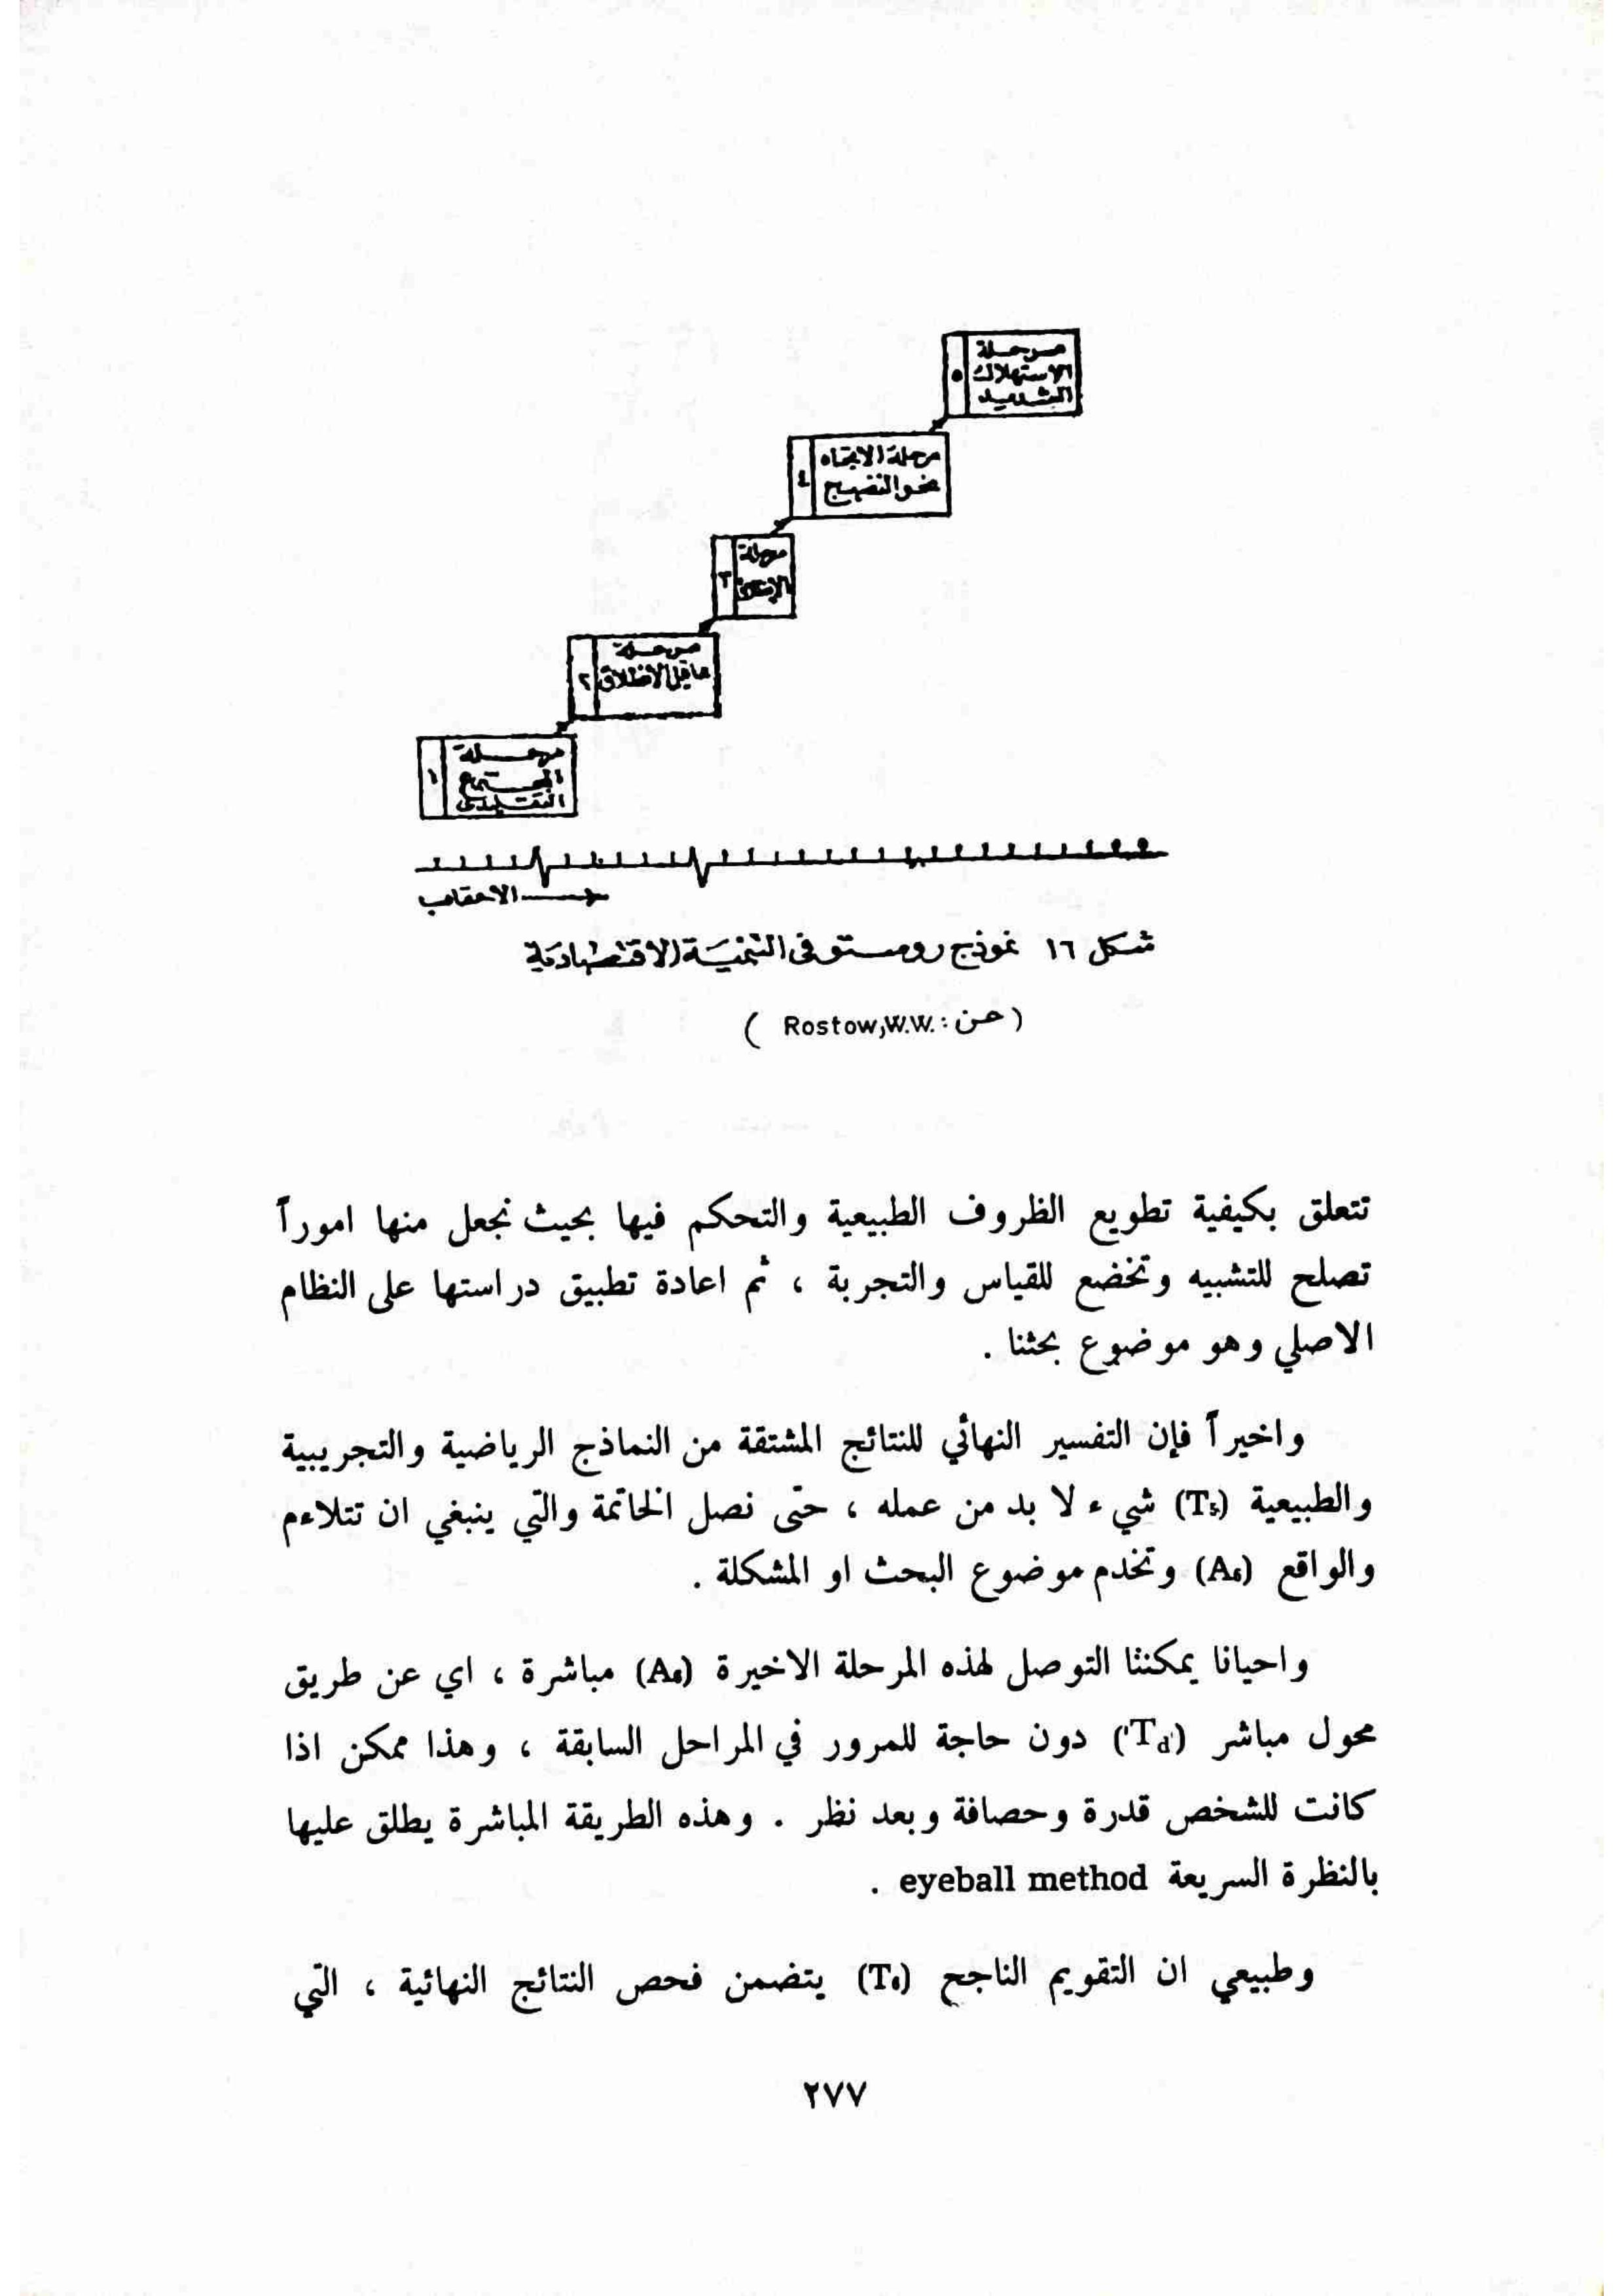 مرحلة
الاستهلاك
الشديد
٥
مرحلة الاتجاه
نحو النضج
٤
مرحلة
٣
مرحلة
ماقبل الانطلاق
٢
مرحلة
المجتمع
التقليدى
١
الاحقاب
شكل ١٦ نموذج روستو فى التنمية الاقتصادية
(عن : Rostow,W.W. )
تتعلق بكيفية تطويع الظروف الطبيعية والتحكم فيها بحيث نجعل منها اموراً
تصلح للتشبيه وتخضع للقياس والتجربة ، ثم اعادة تطبيق دراستها على النظام
الاصلي وهو موضوع بحثنا .
واخيراً فإن التفسير النهائي للنتائج المشتقة من النماذج الرياضية والتجريبية
والطبيعية (T₅) شيء لا بد من عمله ، حتى نصل الخاتمة والتي ينبغي ان تتلاءم
والواقع (A₆) وتخدم موضوع البحث او المشكلة .
واحيانا يمكننا التوصل لهذه المرحلة الاخيرة (A₆) مباشرة ، اي عن طريق
محول مباشر (T'd) دون حاجة للمرور في المراحل السابقة ، وهذا ممكن اذا
كانت للشخص قدرة وحصافة وبعد نظر . وهذه الطريقة المباشرة يطلق عليها
بالنظرة السريعة eyeball method .
وطبيعي ان التقويم الناجح (T₆) يتضمن فحص النتائج النهائية ، التي
٢٧٧